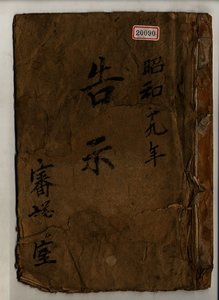 20090
昭和十九年
告示
審 室